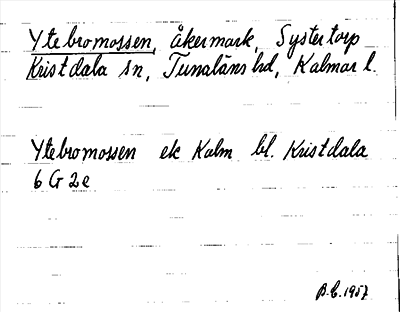 Ytebromossen, åkermark, Systertorp
Kristdala sn, Tunaläns hd, Kalmar l.
Ytebromossen ek Kalm bl. Kristdala
6 G 2 e
B.E. 1957